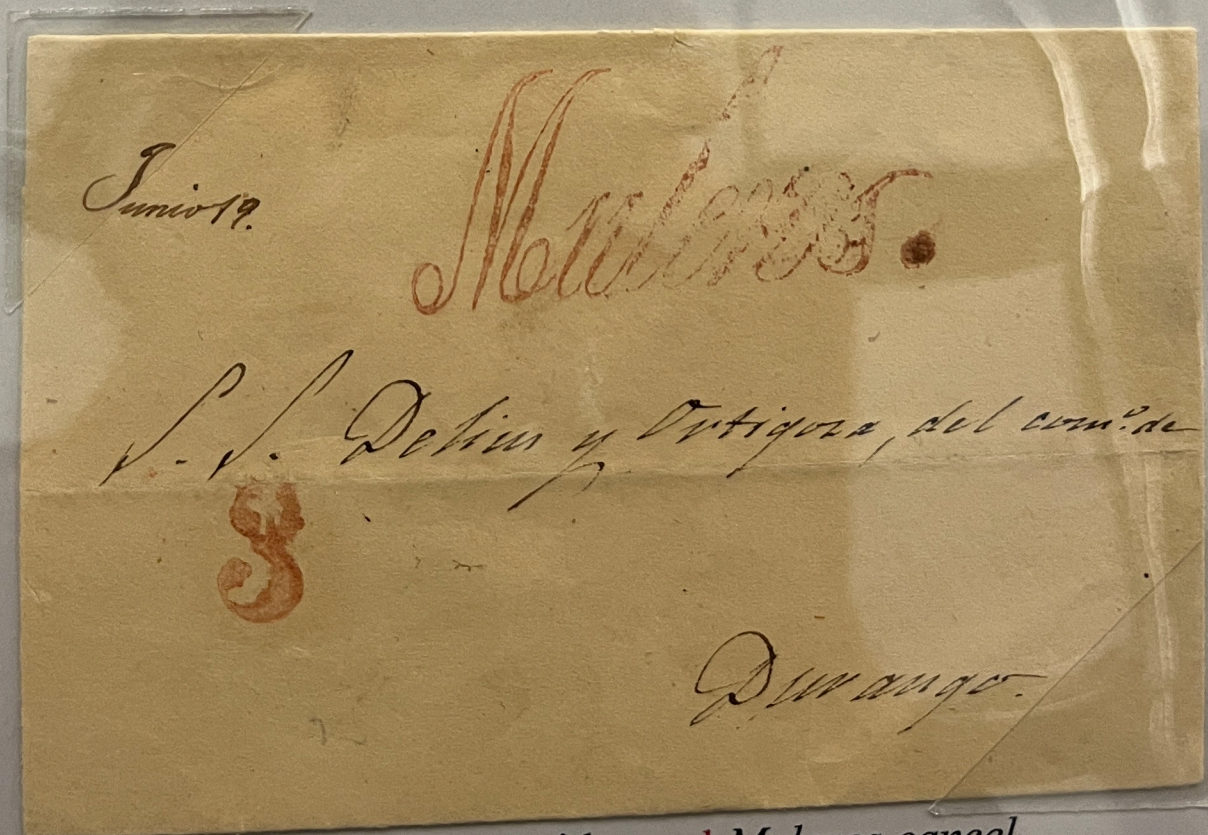 Junio 19.
Malenos.
S. S. Delius y Ortigoza, del com.º de
3
Durango.